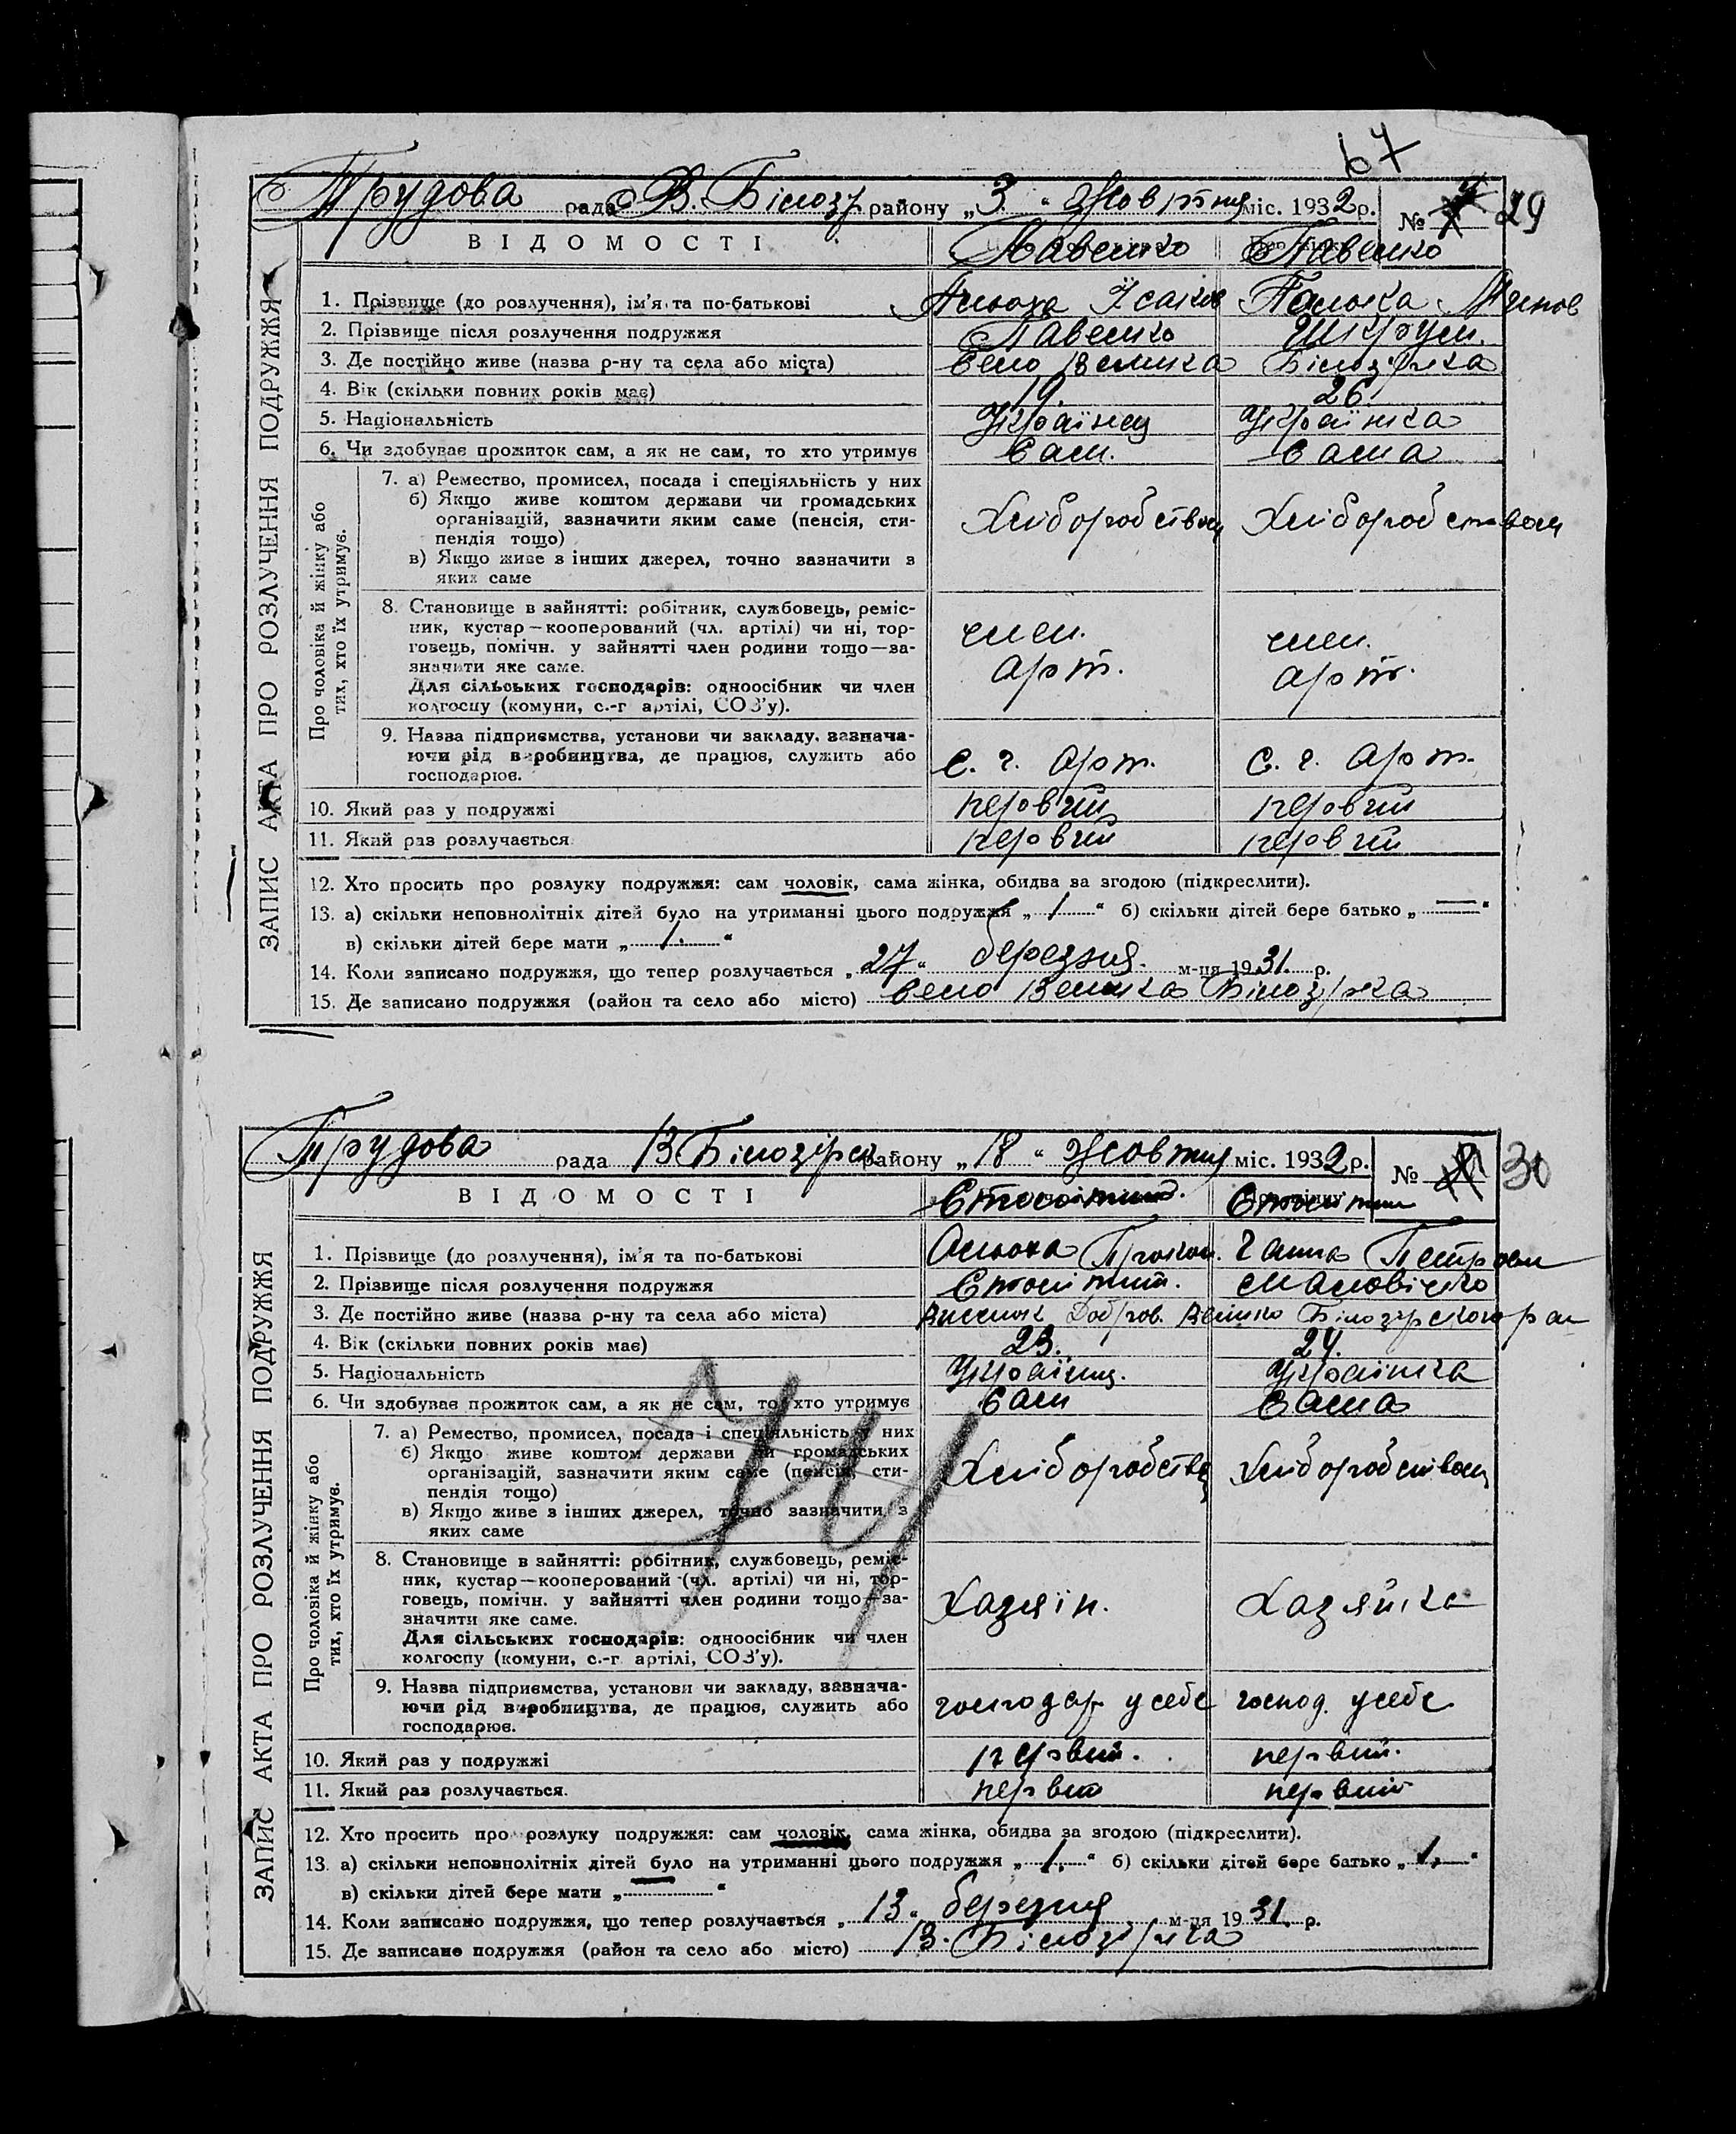 67
Трудова рада В. Білозу району „3“ Жовтня міс. 1932р. № 29
ВІДОМОСТІ Павенко Павенко
ЗАПИС АКТА ПРО РОЗЛУЧЕННЯ ПОДРУЖЖЯ
1. Прізвище (до розлучення), ім’я та по-батькові Ісаков
2. Прізвище після розлучення подружжя Павенко
3. Де постійно живе (назва р-ну та села або міста) Село Велика Білозірка
4. Вік (скільки повних років має) 19. 26.
5. Національність Українец Українка
6. Чи здобуває прожиток сам, а як не сам, то хто утримує Сам. Сама
Про чоловіка й жінку або тих, хто їх утримує.
7. а) Ремество, промисел, посада і спеціяльність у них
б) Якщо живе коштом держави чи громадських
організацій, зазначити яким саме (пенсія, сти-
пендія тощо) Хліборобством Хліборобством
в) Якщо живе з інших джерел, точно зазначити з
яких саме
8. Становище в зайнятті: робітник, службовець, реміс-
ник, кустар—кооперований (чл. артілі) чи ні, тор- член. член.
говець, помічн. у зайнятті член родини тощо—за-
значити яке саме. арт. арт.
Для сільських господарів: одноосібник чи член
колгоспу (комуни, с.-г артілі, СОЗ’у).
9. Назва підприємства, установи чи закладу, зазнача-
ючи рід виробництва, де працює, служить або С. г. арт. С. г. арт.
господарює.
10. Який раз у подружжі первий первий
11. Який раз розлучається первий первий
12. Хто просить про розлуку подружжя: сам чоловік, сама жінка, обидва за згодою (підкреслити).
13. а) скільки неповнолітніх дітей було на утриманні цього подружжя „1“ б) скільки дітей бере батько „—“
в) скільки дітей бере мати „1.“
14. Коли записано подружжя, що тепер розлучається „27“ березня. м-ця 1931. р.
15. Де записано подружжя (район та село або місто) Село Велика Білозірка
Трудова рада В Білозірськ району „18“ Жовтня міс. 1932р. № 30
ВІДОМОСТІ
ЗАПИС АКТА ПРО РОЗЛУЧЕННЯ ПОДРУЖЖЯ
1. Прізвище (до розлучення), ім’я та по-батькові Прокоп. Ганна
2. Прізвище після розлучення подружжя
3. Де постійно живе (назва р-ну та села або міста) Висилок Добров. Велико Білозірского
4. Вік (скільки повних років має) 23. 24.
5. Національність Українец. Українка
6. Чи здобуває прожиток сам, а як не сам, то хто утримує Сам Сама
Про чоловіка й жінку або тих, хто їх утримує.
7. а) Ремество, промисел, посада і спеціяльність у них
б) Якщо живе коштом держави чи громадських
організацій, зазначити яким саме (пенсія, сти- Хліборобство Хліборобством
пендія тощо)
в) Якщо живе з інших джерел, точно зазначити з
яких саме
8. Становище в зайнятті: робітник, службовець, реміс-
ник, кустар—кооперований (чл. артілі) чи ні, тор-
говець, помічн. у зайнятті член родини тощо—за- Хазяїн. Хазяйка
значити яке саме.
Для сільських господарів: одноосібник чи член
колгоспу (комуни, с.-г артілі, СОЗ’у).
9. Назва підприємства, установи чи закладу, зазнача- господар у себе господ. у себе
ючи рід виробництва, де працює, служить або
господарює.
10. Який раз у подружжі первий. первий.
11. Який раз розлучається. первий первий
12. Хто просить про розлуку подружжя: сам чоловік, сама жінка, обидва за згодою (підкреслити).
13. а) скільки неповнолітніх дітей було на утриманні цього подружжя „1.“ б) скільки дітей бере батько „1.“
в) скільки дітей бере мати „“
14. Коли записано подружжя, що тепер розлучається „13“ березня м-ця 1931. р.
15. Де записано подружжя (район та село або місто) В. Білозірка